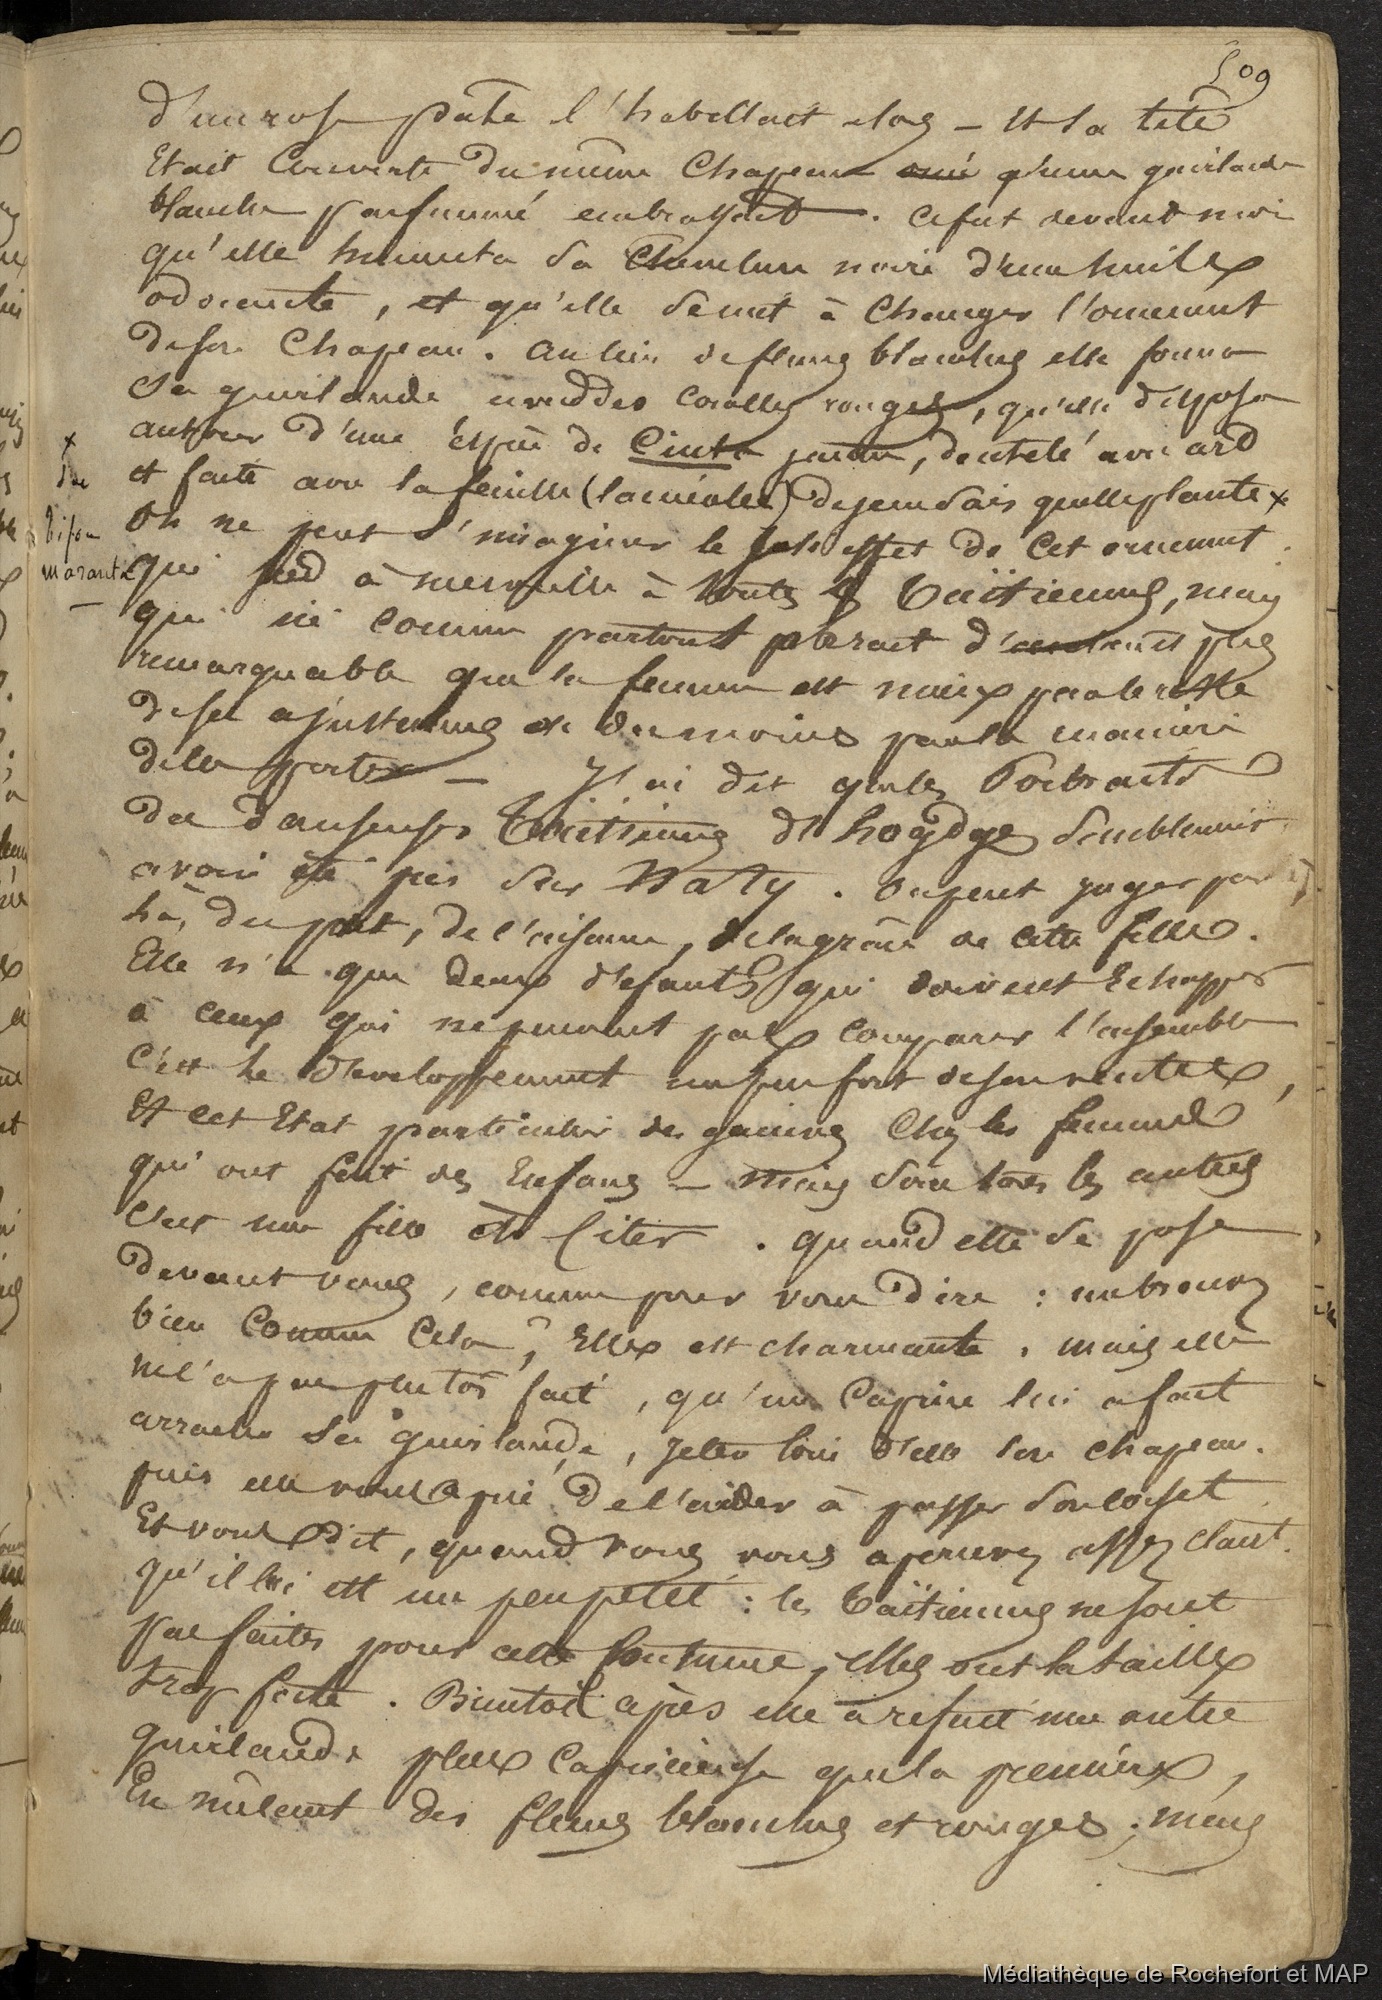 509
d'un rose pâle l'habillait alors – Et sa tête
Etait Couverte du même Chapeau qu'une guirlande
blanche parfumée embrassait. Ce fut devant moi
qu'elle humecta sa Chevelure noire d'une huile
odorante, et qu'elle se mit à changer l'ornement
de son Chapeau. Au lieu de fleurs blanches elle forma
sa guirlande avec des corolles rouges, qu'elle disposa
autour d'une Espèce de jaune, dentelé avec art
et faite avec la feuille (lacérée) de je ne sais quelle plante x
On ne peut s'imaginer le joli effet de cet ornement
qui sied à merveille à toutes les Taïtiennes, mais
qui ici comme partout paraît d'autant plus
remarquable que la femme est mieux par le reste
de ses ajustemens ou du moins par la manière
de les porter – J'ai dit que les Portraits
des danseuses Taïtiennes d'hogdges semblaient
avoir été pris sur Naty. On peut juger par
là, du port, de l'aisance, de la grâce de cette fille.
Elle n'a que deux défauts qui doivent Echapper
à ceux qui ne peuvent pas comparer l'ensemble
C'est le développement un peu fort de son ventre,
Et cet Etat particulier des gencives Chez les femmes
qui ont fait des Enfans – mais sous tous les autres
c'est une fille à Citer. quand elle se pose
devant vous, comme pour vous dire : me trouvez
bien Comme Cela ? Elle est charmante. mais elle
ne l'a pas plutôt fait, qu'un Caprice lui a fait
arracher sa guirlande, jeter loin d'elle son chapeau.
puis elle vous a prié de l'aider à passer son corset
Et vous dit, quand vous vous apercevez
qu'il lui est un peu petit : les Taïtiennes ne sont
pas faites pour cette Coutume, elles ont la taille
trop forte. Bientôt après elle a refait une autre
guirlande plus Capricieuse que la première,
En mêlant des fleurs blanches et rouges ; mais
x
du
Médiathèque de Rochefort et MAP